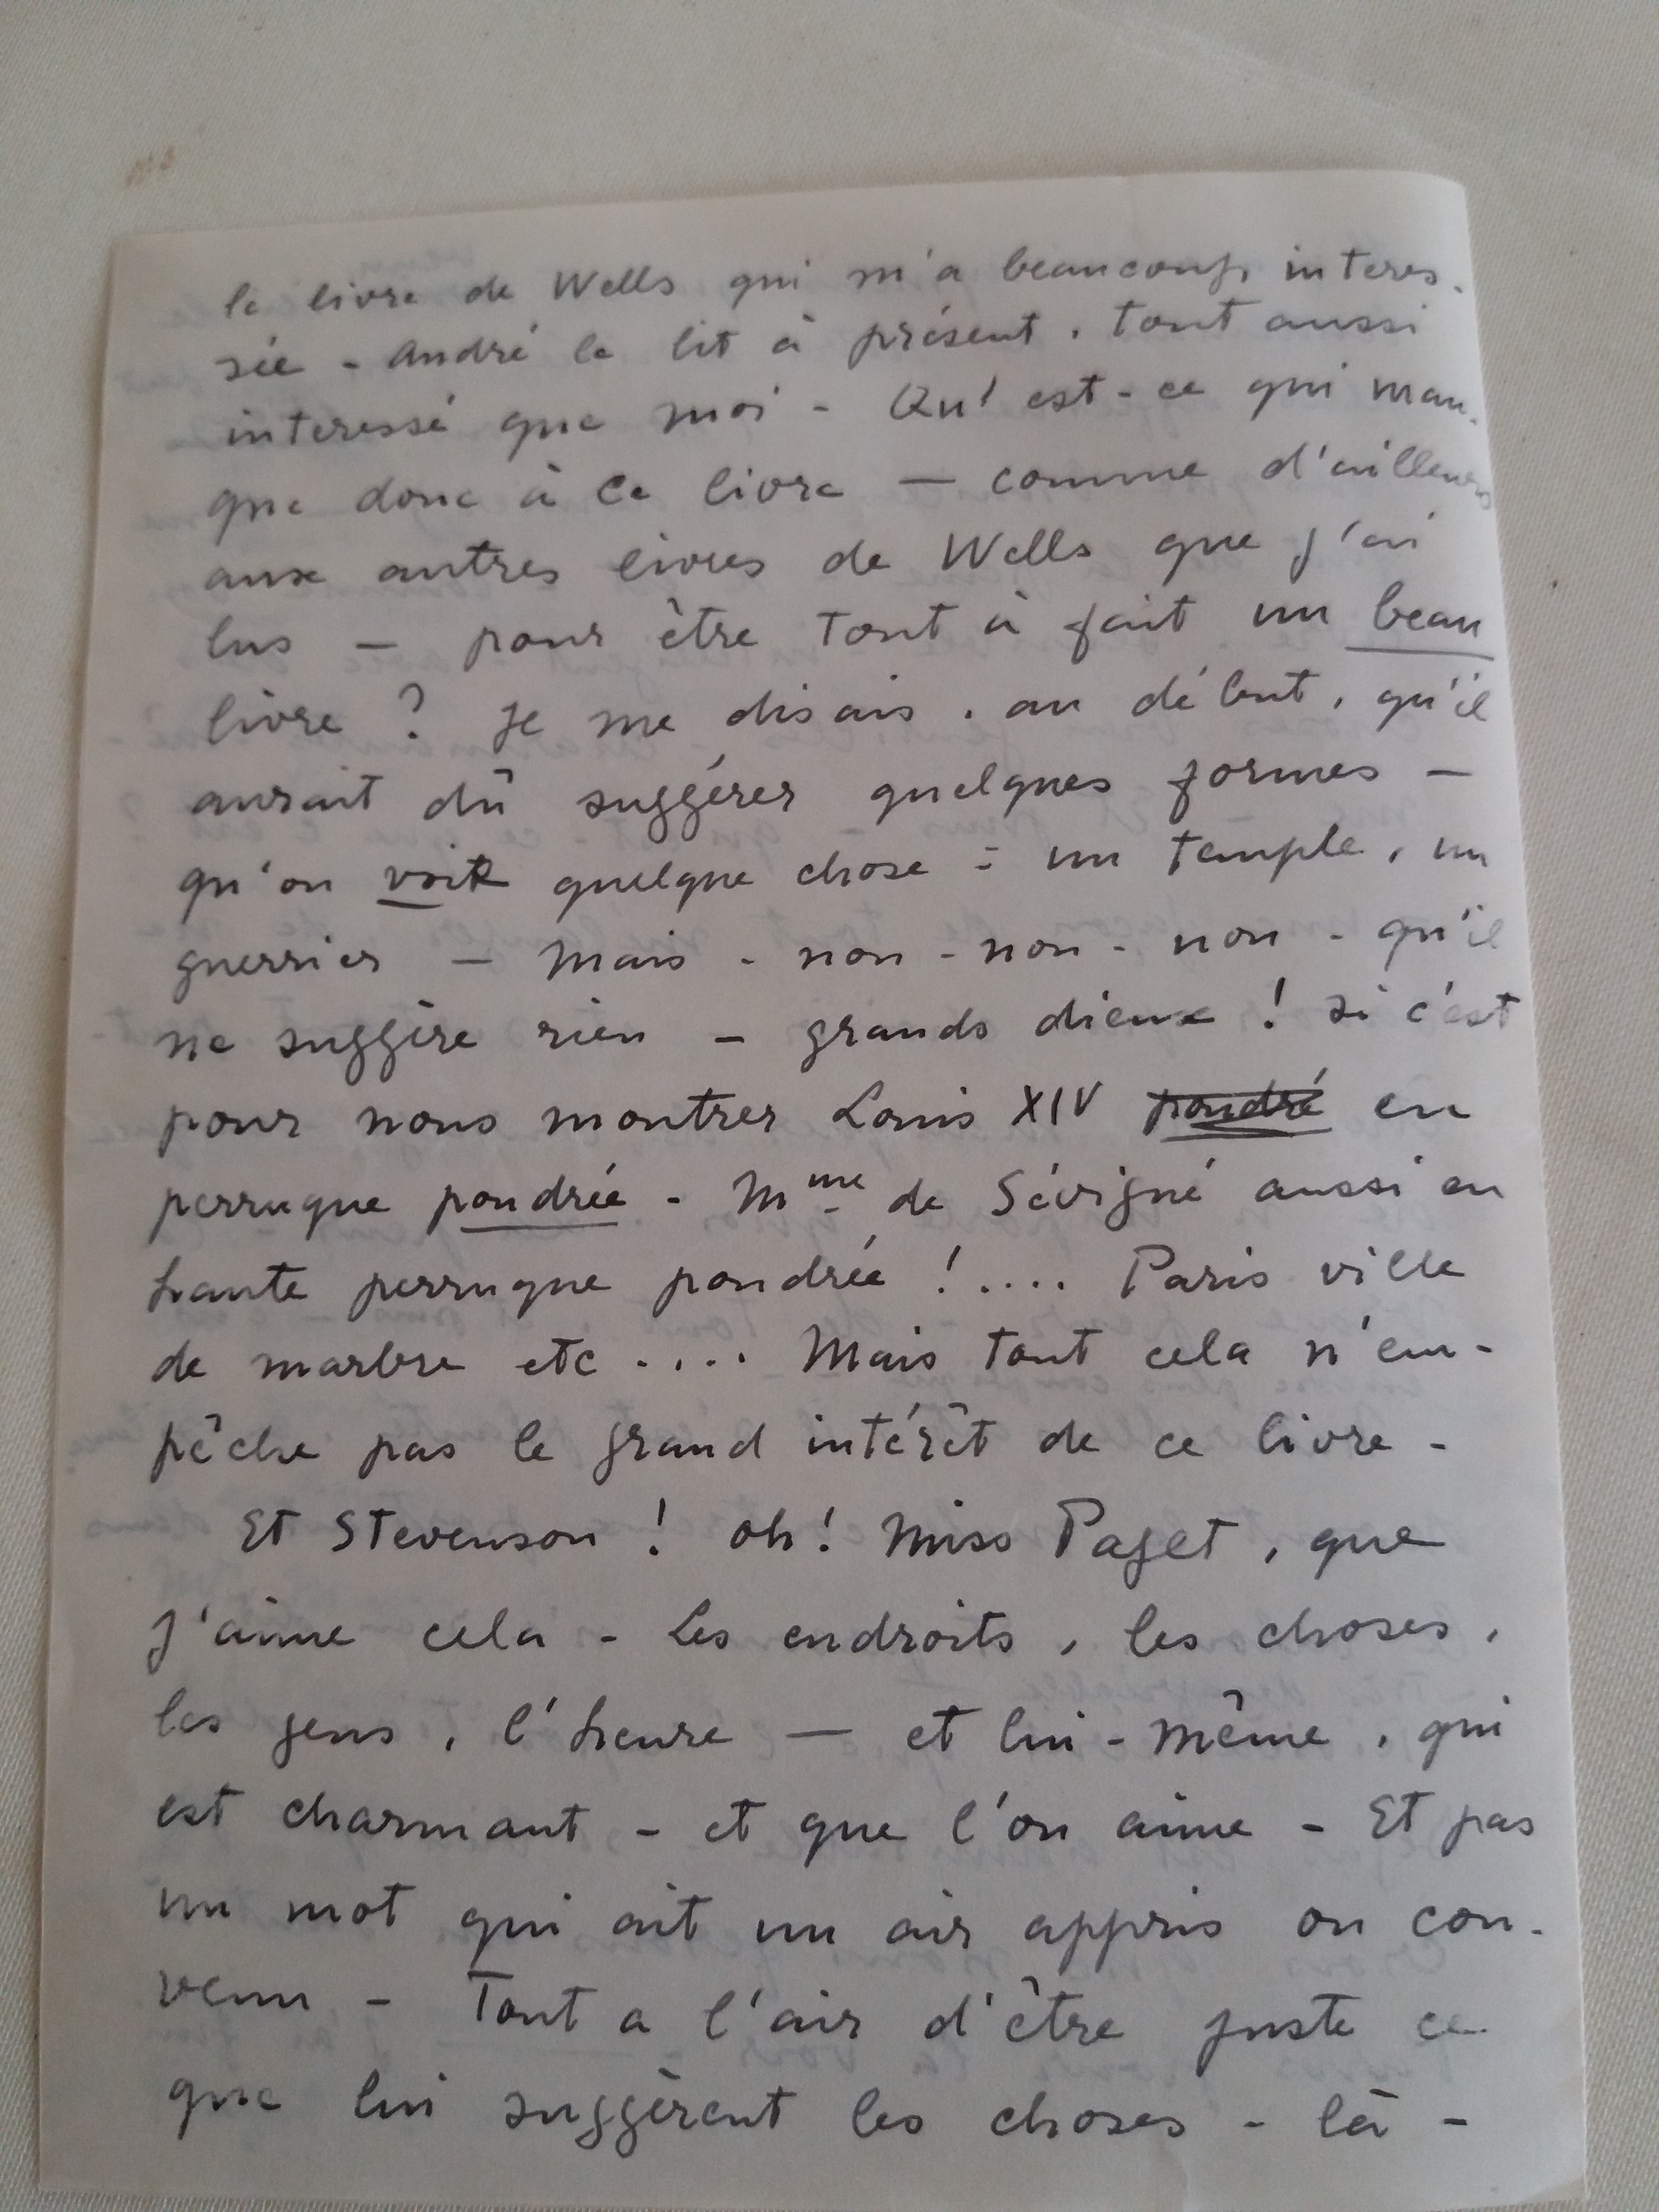 le livre de Wells qui m'a beaucoup interes-
sée - André le lit à présent, tout aussi
interessé que moi - Qu'est-ce qui man-
que donc à ce livre — comme d'ailleurs
aux autres livres de Wells que j'ai
lus — pour être tout à fait un beau
livre ? Je me disais, au début, qu'il
aurait dû suggérer quelques formes —
qu'on voit quelque chose : un temple, un
guerrier — Mais - non - non - non - qu'il
ne suggère rien - grands dieux ! si c'est
pour nous montrer Louis XIV poudré en
perruque poudrée - Mme de Sévigné aussi en
haute perruque poudrée ! .... Paris ville
de marbre etc .... Mais tout cela n'em-
pêche pas le grand intérêt de ce livre -
Et Stevenson ! oh ! Miss Paget, que
j'aime cela - Les endroits, les choses,
les gens, l'heure — et lui-même, qui
est charmant - et que l'on aime - Et pas
un mot qui ait un air appris ou con-
venu - Tout a l'air d'être juste ce
que lui suggèrent les choses - là -